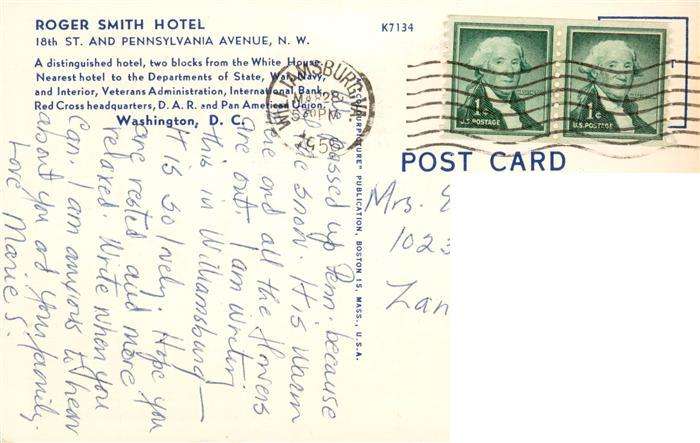 ROGER SMITH HOTEL
18th ST. AND PENNSYLVANIA AVENUE, N. W.
A distinguished hotel, two blocks from the White House.
Nearest hotel to the Departments of State, War, Navy,
and Interior, Veterans Administration, International Bank,
Red Cross headquarters, D. A. R. and Pan American Union.
Washington, D. C.
K7134
WILLIAMSBURG, VA.
MAR 28
PM
1¢
U.S. POSTAGE
1¢
U.S. POSTAGE
POST CARD
"COLOURPICTURE" PUBLICATION, BOSTON 15, MASS., U.S.A.
passed up Penn. because
of the snow. It is warm
here and all the flowers
are out. I am writing
this in Williamsburg —
It is so lovely. Hope you
are rested and more
relaxed. Write when you
can. I am anxious to hear
about you ad your family.
Love Marie S.
Mrs. 
102
Zan